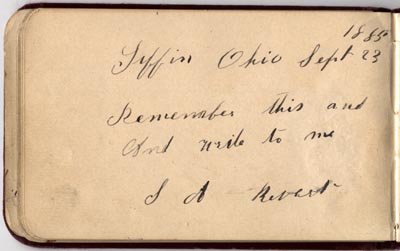 1885
Tiffin Ohio Sept 23
Remember this and
And write to me
S A